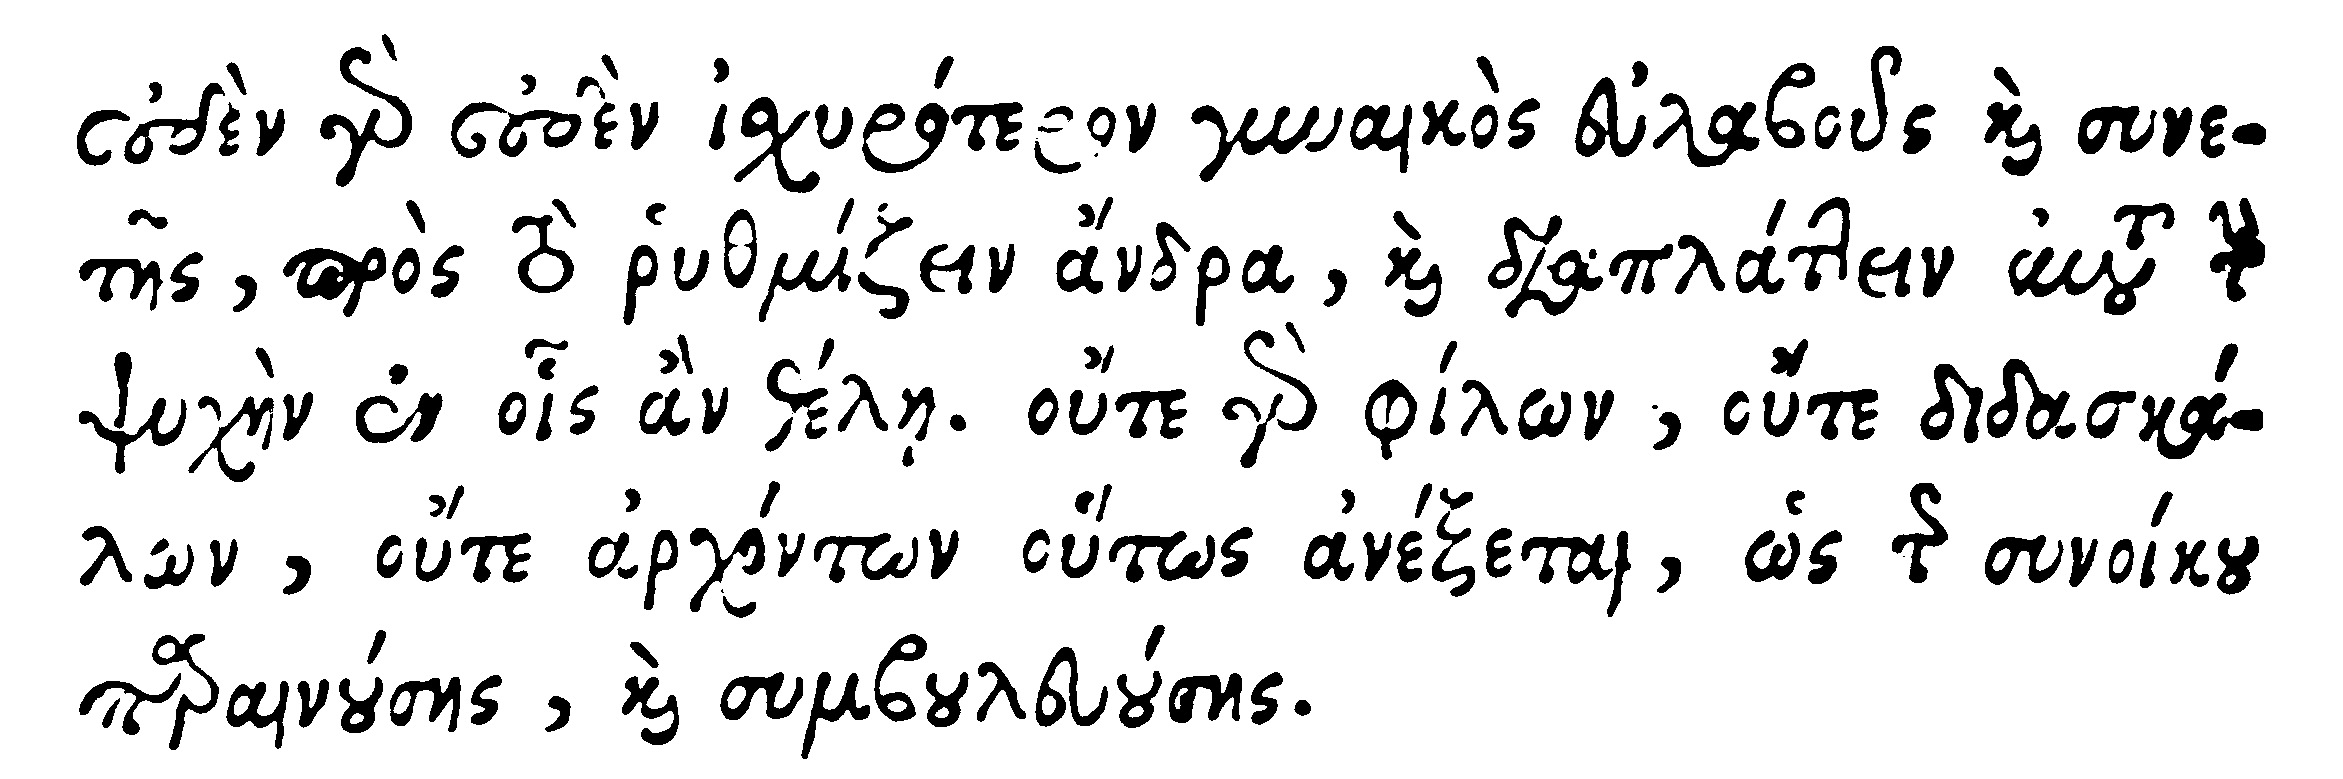 οὐδὲν γὰρ οὐδὲν ἰσχυρότερον γυναικὸς εὐλαβοῦς καὶ συνε-
τῆς, πρὸς τὸ ῥυθμίζειν ἄνδρα, καὶ διαπλάττειν αὐτοῦ τὴν
ψυχὴν ἐν οἷς ἂν θέλῃ. οὔτε γὰρ φίλων, οὔτε διδασκά-
λων, οὔτε ἀρχόντων οὕτως ἀνέξεται, ὡς τῆς συνοίκου
παραινούσης, καὶ συμβουλευούσης.